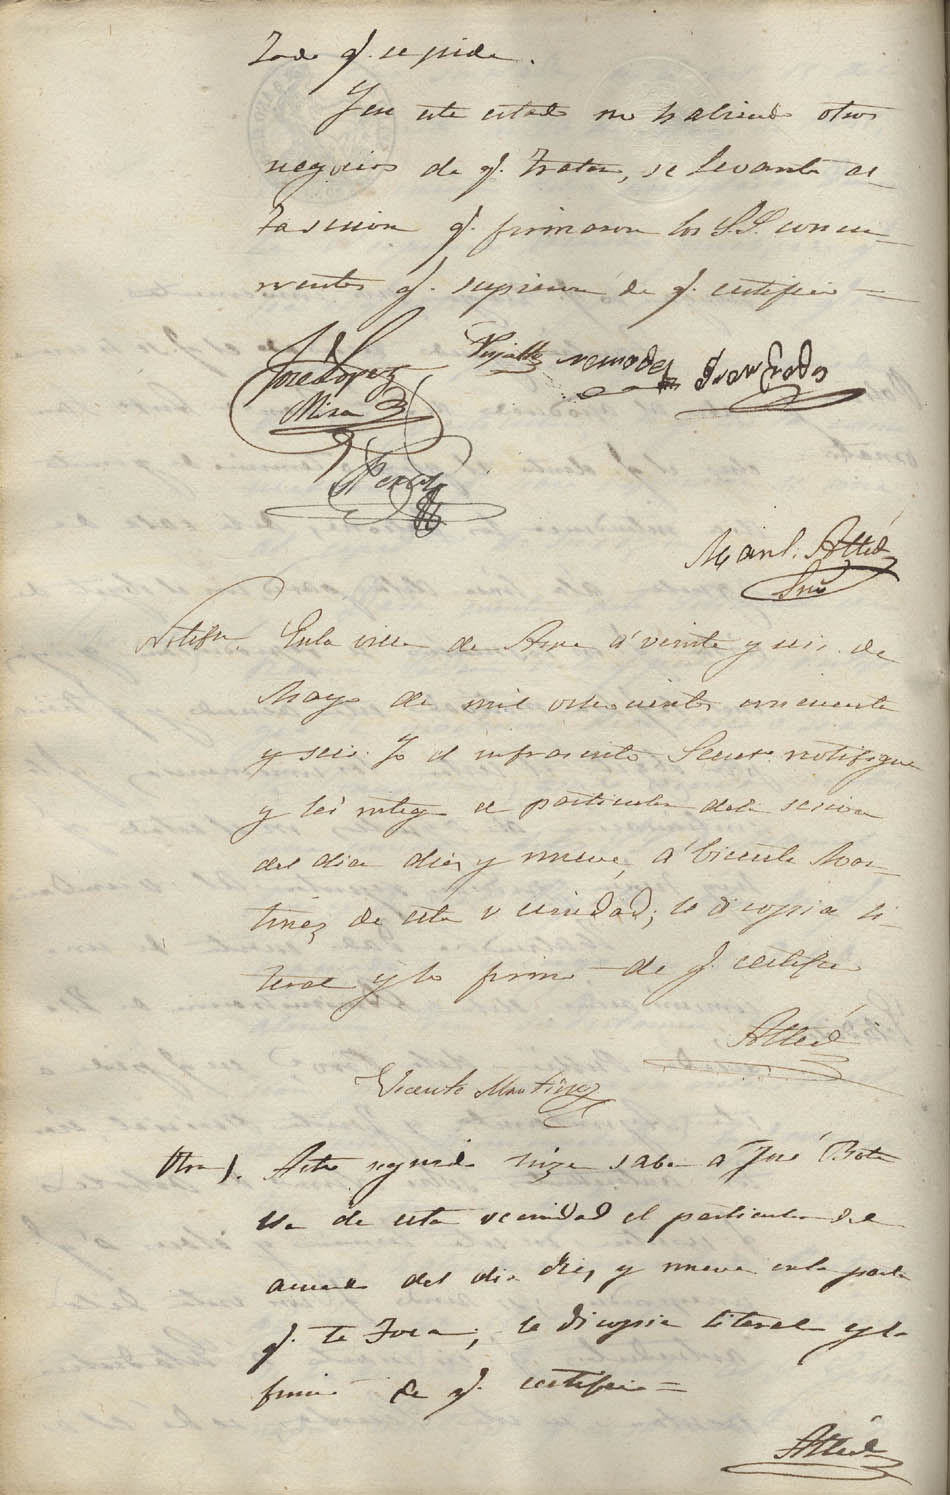 tado q.^e se pide.
Y en este estado no habiendo otros
negocios de q.^e tratar, se levantó es-
ta sesion q.^e firmaron los S.S. concu-
rrentes q.^e supieron de q.^e certifico =
José Lopez
Mira
Juan Prados
Man.l. Alted
Srio
Notifn. En la villa de Aspe á veinte y seis de
Mayo de mil ochocientos cincuenta
y seis: Yo el infrascrito Secret.o notifique
y leí integro el particular de la sesion
del dia diez y nueve, á Vicente Mar-
tinez de esta vecindad; le di copia li-
teral y lo firmó de q.^e certifico
Alted
Vicente Martinez
Otra). Acto seguido hize saber á José Bote
lla de esta vecindad el particular del
acuerdo del dia diez y nueve en la parte
q.^e le toca; le di copia literal y lo
firmó de q.^e certifico =
Alted